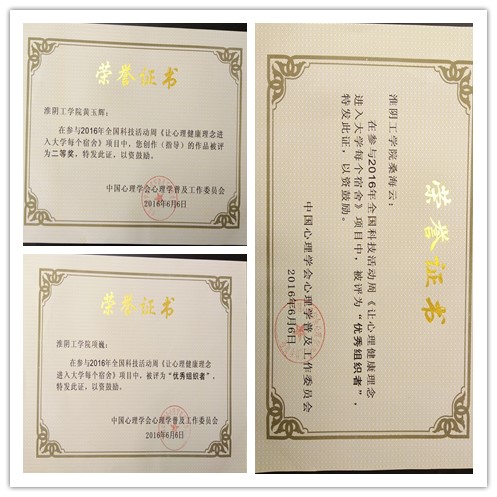 荣誉证书
淮阴工学院黄玉辉：
在参与2016年全国科技活动周《让心理健康理念进
入大学每个宿舍》项目中，您创作（指导）的作品被评
为二等奖，特发此证，以资鼓励。
中国心理学会心理学普及工作委员会
2016年6月6日
荣誉证书
淮阴工学院项巍：
在参与2016年全国科技活动周《让心理健康理念
进入大学每个宿舍》项目中，被评为“优秀组织者”，
特发此证，以资鼓励。
中国心理学会心理学普及工作委员会
2016年6月6日
荣誉证书
淮阴工学院桑海云：
在参与2016年全国科技活动周《让心理健康理念
进入大学每个宿舍》项目中，被评为“优秀组织者”，
特发此证，以资鼓励。
中国心理学会心理学普及工作委员会
2016年6月6日